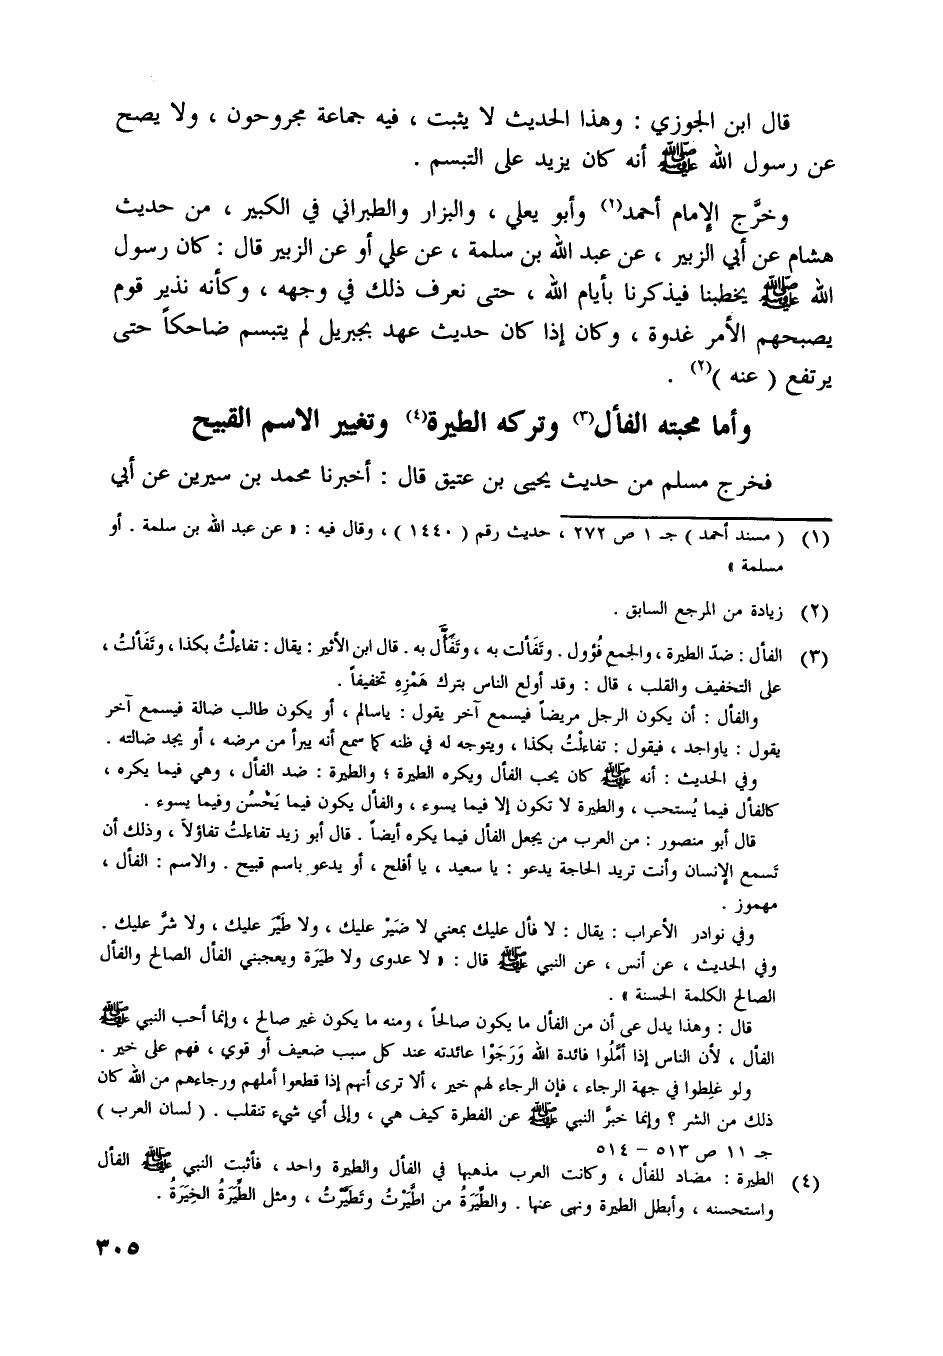 قال ابن الجوزي : وهذا الحديث لا يثبت ، فيه جماعة مجروحون ، ولا يصح
عن رسول الله ﷺ أنه كان يزيد على التبسم .
وخرَّج الإمام أحمد(١) وأبو يعلي ، والبزار والطبراني في الكبير ، من حديث
هشام عن أبي الزبير ، عن عبد الله بن سلمة ، عن علي أو عن الزبير قال : كان رسول
الله ﷺ يخطبنا فيذكرنا بأيام الله ، حتى نعرف ذلك في وجهه ، وكأنه نذير قوم
يصبحهم الأمر غدوة ، وكان إذا كان حديث عهد بجبريل لم يتبسم ضاحكاً حتى
يرتفع ( عنه )(٢) .
وأما محبته الفأل(٣) وتركه الطيرة(٤) وتغيير الاسم القبيح
فخرج مسلم من حديث يحيى بن عتيق قال : أخبرنا محمد بن سيرين عن أبي
(١) ( مسند أحمد ) جـ ١ ص ٢٧٢ ، حديث رقم ( ١٤٤٠ ) ، وقال فيه : « عن عبد الله بن سلمة . أو
مسلمة »
(٢) زيادة من المرجع السابق .
(٣) الفأل : ضدّ الطيرة ، والجمع فُؤول . وتَفألت به ، وتَفَأَّل به . قال ابن الأثير : يقال : تفاءلْتُ بكذا ، وتَفَألتُ ،
على التخفيف والقلب ، قال : وقد أولع الناس بترك هَمْزِهِ تخفيفاً .
والفأل : أن يكون الرجل مريضاً فيسمع آخر يقول : ياسالم ، أو يكون طالب ضالة فيسمع آخر
يقول : ياواجد ، فيقول : تفاءلْتُ بكذا ، ويتوجه له في ظنه كما سمع أنه يبرأ من مرضه ، أو يجد ضالته .
وفي الحديث : أنه ﷺ كان يحب الفأل ويكره الطيرة ؛ والطيرة : ضد الفأل ، وهي فيما يكره ،
كالفأل فيما يُستحب ، والطيرة لا تكون إلا فيما يسوء ، والفأل يكون فيما يَحْسُن وفيما يسوء .
قال أبو منصور : من العرب من يجعل الفأل فيما يكره أيضاً . قال أبو زيد تفاءلتُ تفاؤلاً ، وذلك أن
تَسمع الإنسان وأنت تريد الحاجة يدعو : يا سعيد ، يا أفلح ، أو يدعو باسم قبيح . والاسم : الفأل ،
مهموز .
وفي نوادر الأعراب : يقال : لا فأل عليك بمعني لا ضَيَرْ عليك ، ولا طَيْرَ عليك ، ولا شرَّ عليك .
وفي الحديث ، عن أنس ، عن النبي ﷺ قال : « لا عدوى ولا طيَرَة ويعجبني الفأل الصالح والفأل
الصالح الكلمة الحسنة » .
قال : وهذا يدل عى أن من الفأل ما يكون صالحاً ، ومنه ما يكون غير صالح ، وإنما أحب النبي ﷺ
الفأل ، لأن الناس إذا أَمَّلُوا فائدة الله وَرَجَوْا عائدته عند كل سبب ضعيف أو قوي ، فهم على خير .
ولو غلِطوا في جهة الرجاء ، فإن الرجاء لهم خير ، ألا ترى أنهم إذا قطعوا أملهم ورجاءهم من الله كان
ذلك من الشر ؟ وإنما خبرَّ النبي ﷺ عن الفطرة كيف هي ، وإلى أي شيء تنقلب . ( لسان العرب )
جـ ١١ ص ٥١٣ – ٥١٤
(٤) الطيرة : مضاد للفأل ، وكانت العرب مذهبها في الفأل والطيرة واحد ، فأثبت النبي ﷺ الفأل
واستحسنه ، وأبطل الطيرة ونهى عنها . والطِّيَرَةُ من اطَّيَرْتُ وتَطَيَّرْتُ ، ومثل الطِّيَرَةُ الخِيَرَةُ .
٣٠٥